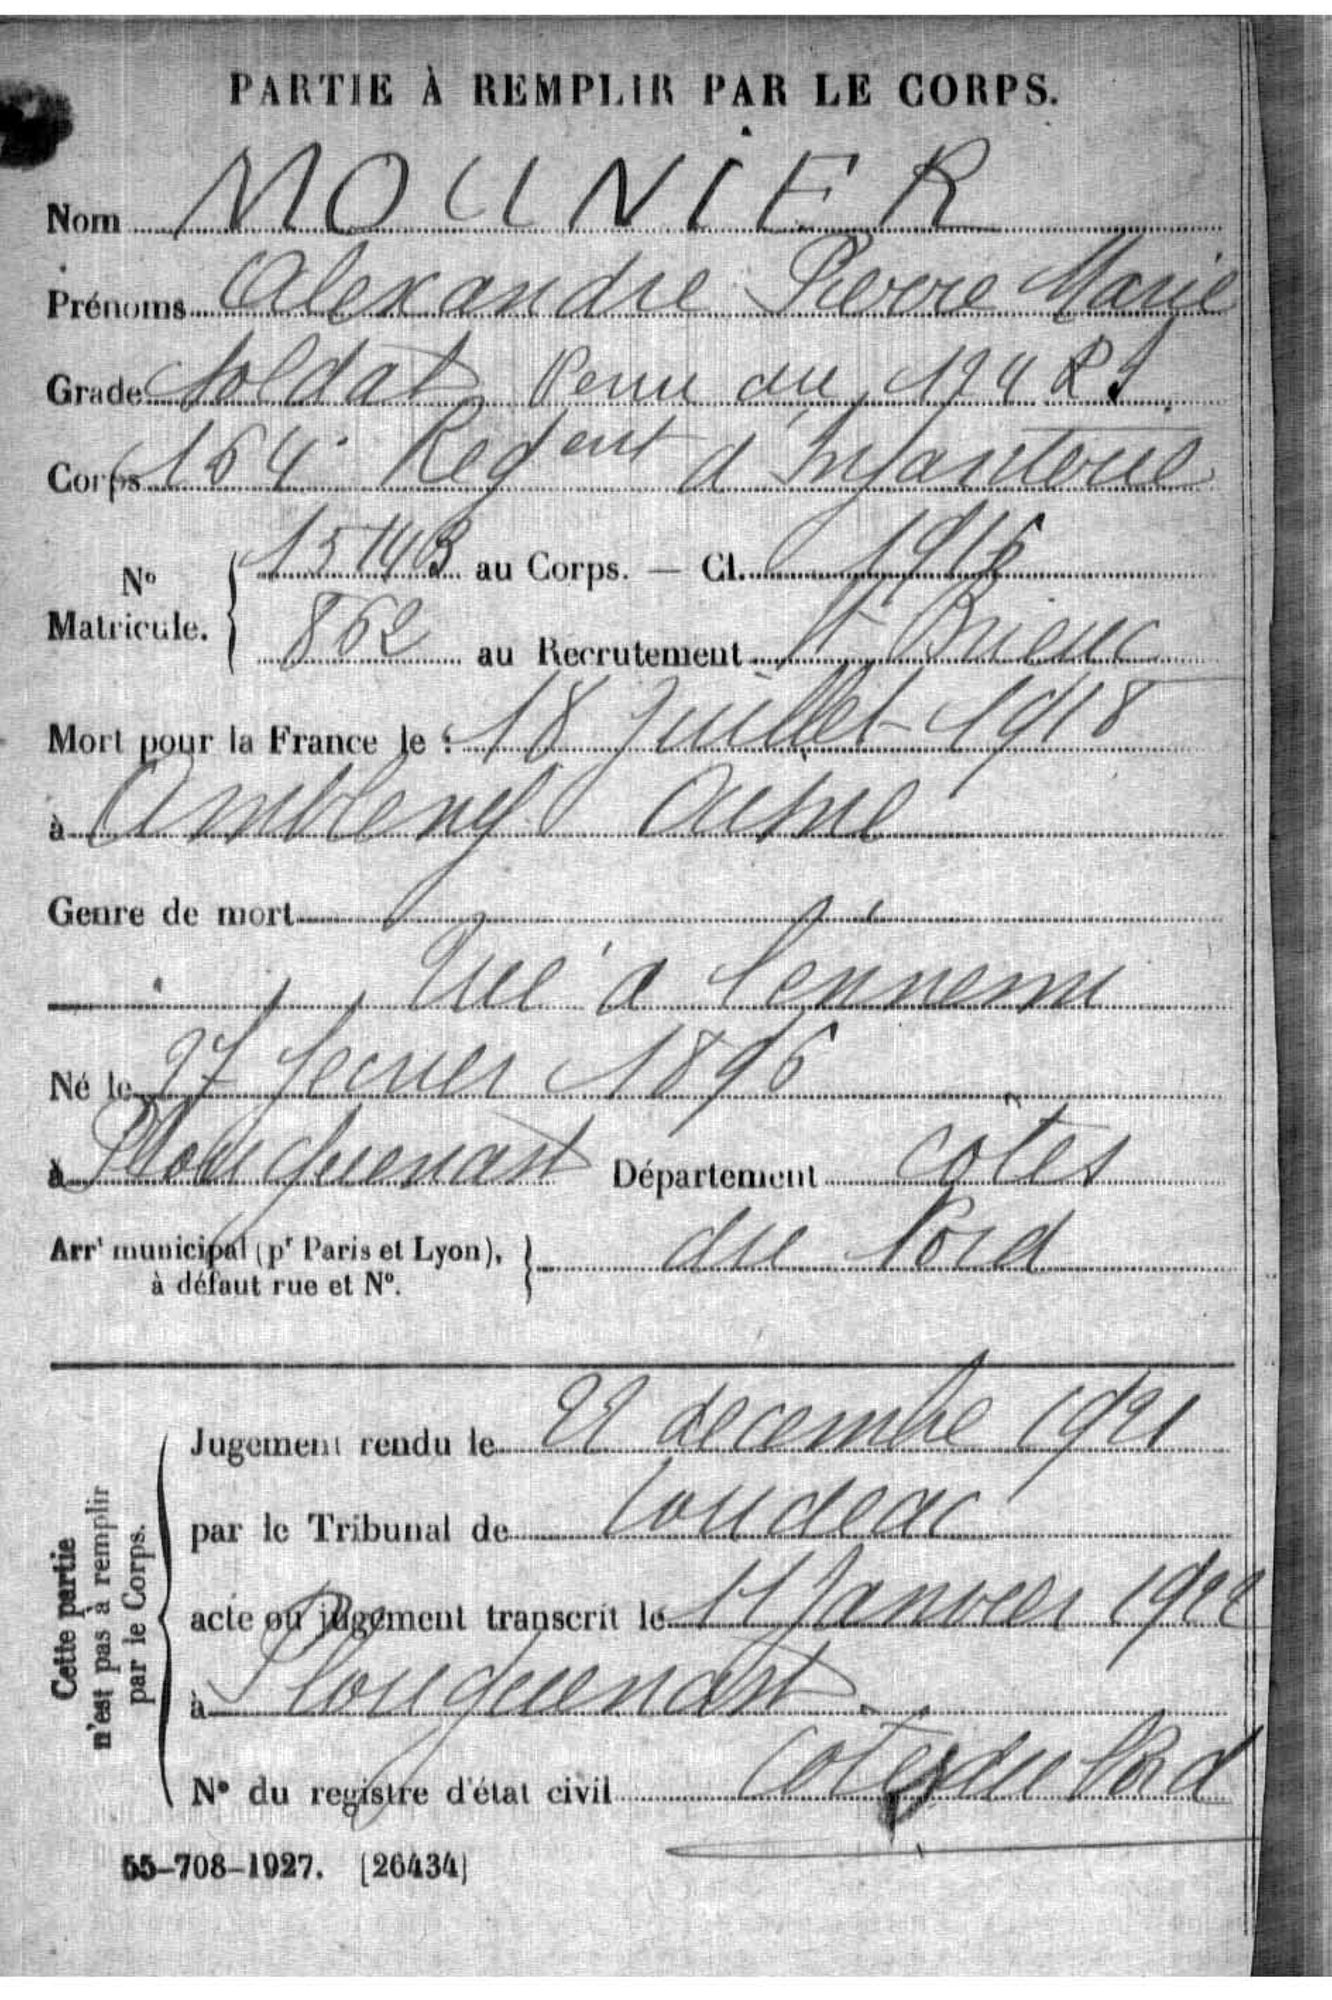 PARTIE À REMPLIR PAR LE CORPS.
Nom MOUNIER
Prénoms Alexandre Pierre Marie
Grade Soldat Venu du 124 RI
Corps 164e Regent d'Infanterie
No Matricule. 15143 au Corps. — Cl. 1916
862 au Recrutement St Brieuc
Mort pour la France le : 18 Juillet 1918
à Ambleny Aisne
Genre de mort
Tué à l'ennemi
Né le 27 février 1896
à Plouguenast Département Côtes
Arrt municipal (pr Paris et Lyon), du Nord
à défaut rue et No.
Cette partie
n'est pas à remplir
par le Corps.
Jugement rendu le 22 decembre 1921
par le Tribunal de Loudeac
acte ou jugement transcrit le 11 Janvier 1922
à Plouguenast
No du registre d'état civil Cotes du Nord
55-708-1927. [26434]